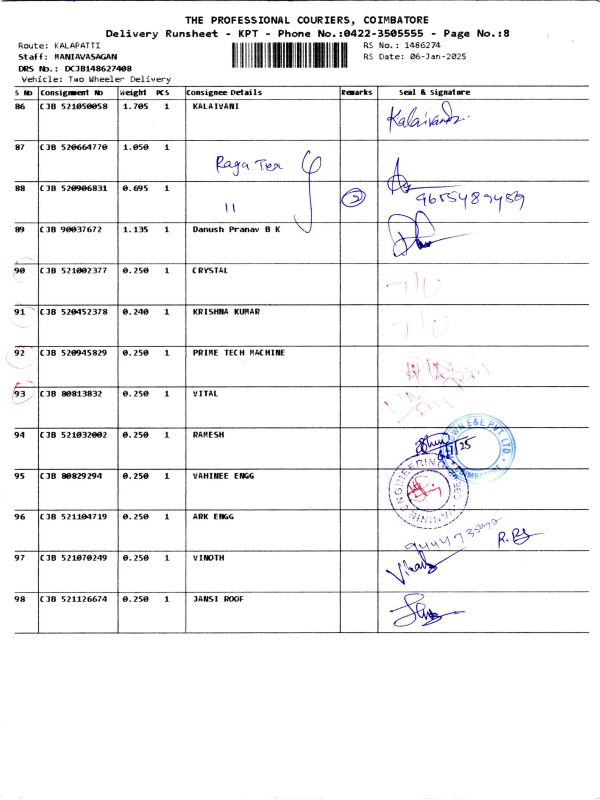 THE PROFESSIONAL COURIERS, COIMBATORE
Delivery Runsheet - KPT - Phone No.:0422-3505555 - Page No.:8
Route: KALAPATTI RS No.: 1486274
Staff: MANIAVASAGAN RS Date: 06-Jan-2025
DRS No.: DCJB148627408
Vehicle: Two Wheeler Delivery
S No Consignment No Weight PCS Consignee Details Remarks Seal & Signature
86 CJB 521050058 1.705 1 KALAIVANI Kalaivani
87 CJB 520664770 1.050 1
Raga Tex
88 CJB 520906831 0.695 1 11 2 9655489489
89 CJB 90037672 1.135 1 Danush Pranav B K
90 CJB 521002377 0.250 1 CRYSTAL
91 CJB 520452378 0.240 1 KRISHNA KUMAR
92 CJB 520945829 0.250 1 PRIME TECH MACHINE
93 CJB 80813832 0.250 1 VITAL
94 CJB 521032002 0.250 1 RAMESH
95 CJB 80829294 0.250 1 VAHINEE ENGG
96 CJB 521104719 0.250 1 ARK ENGG
97 CJB 521070249 0.250 1 VINOTH
98 CJB 521126674 0.250 1 JANSI ROOF